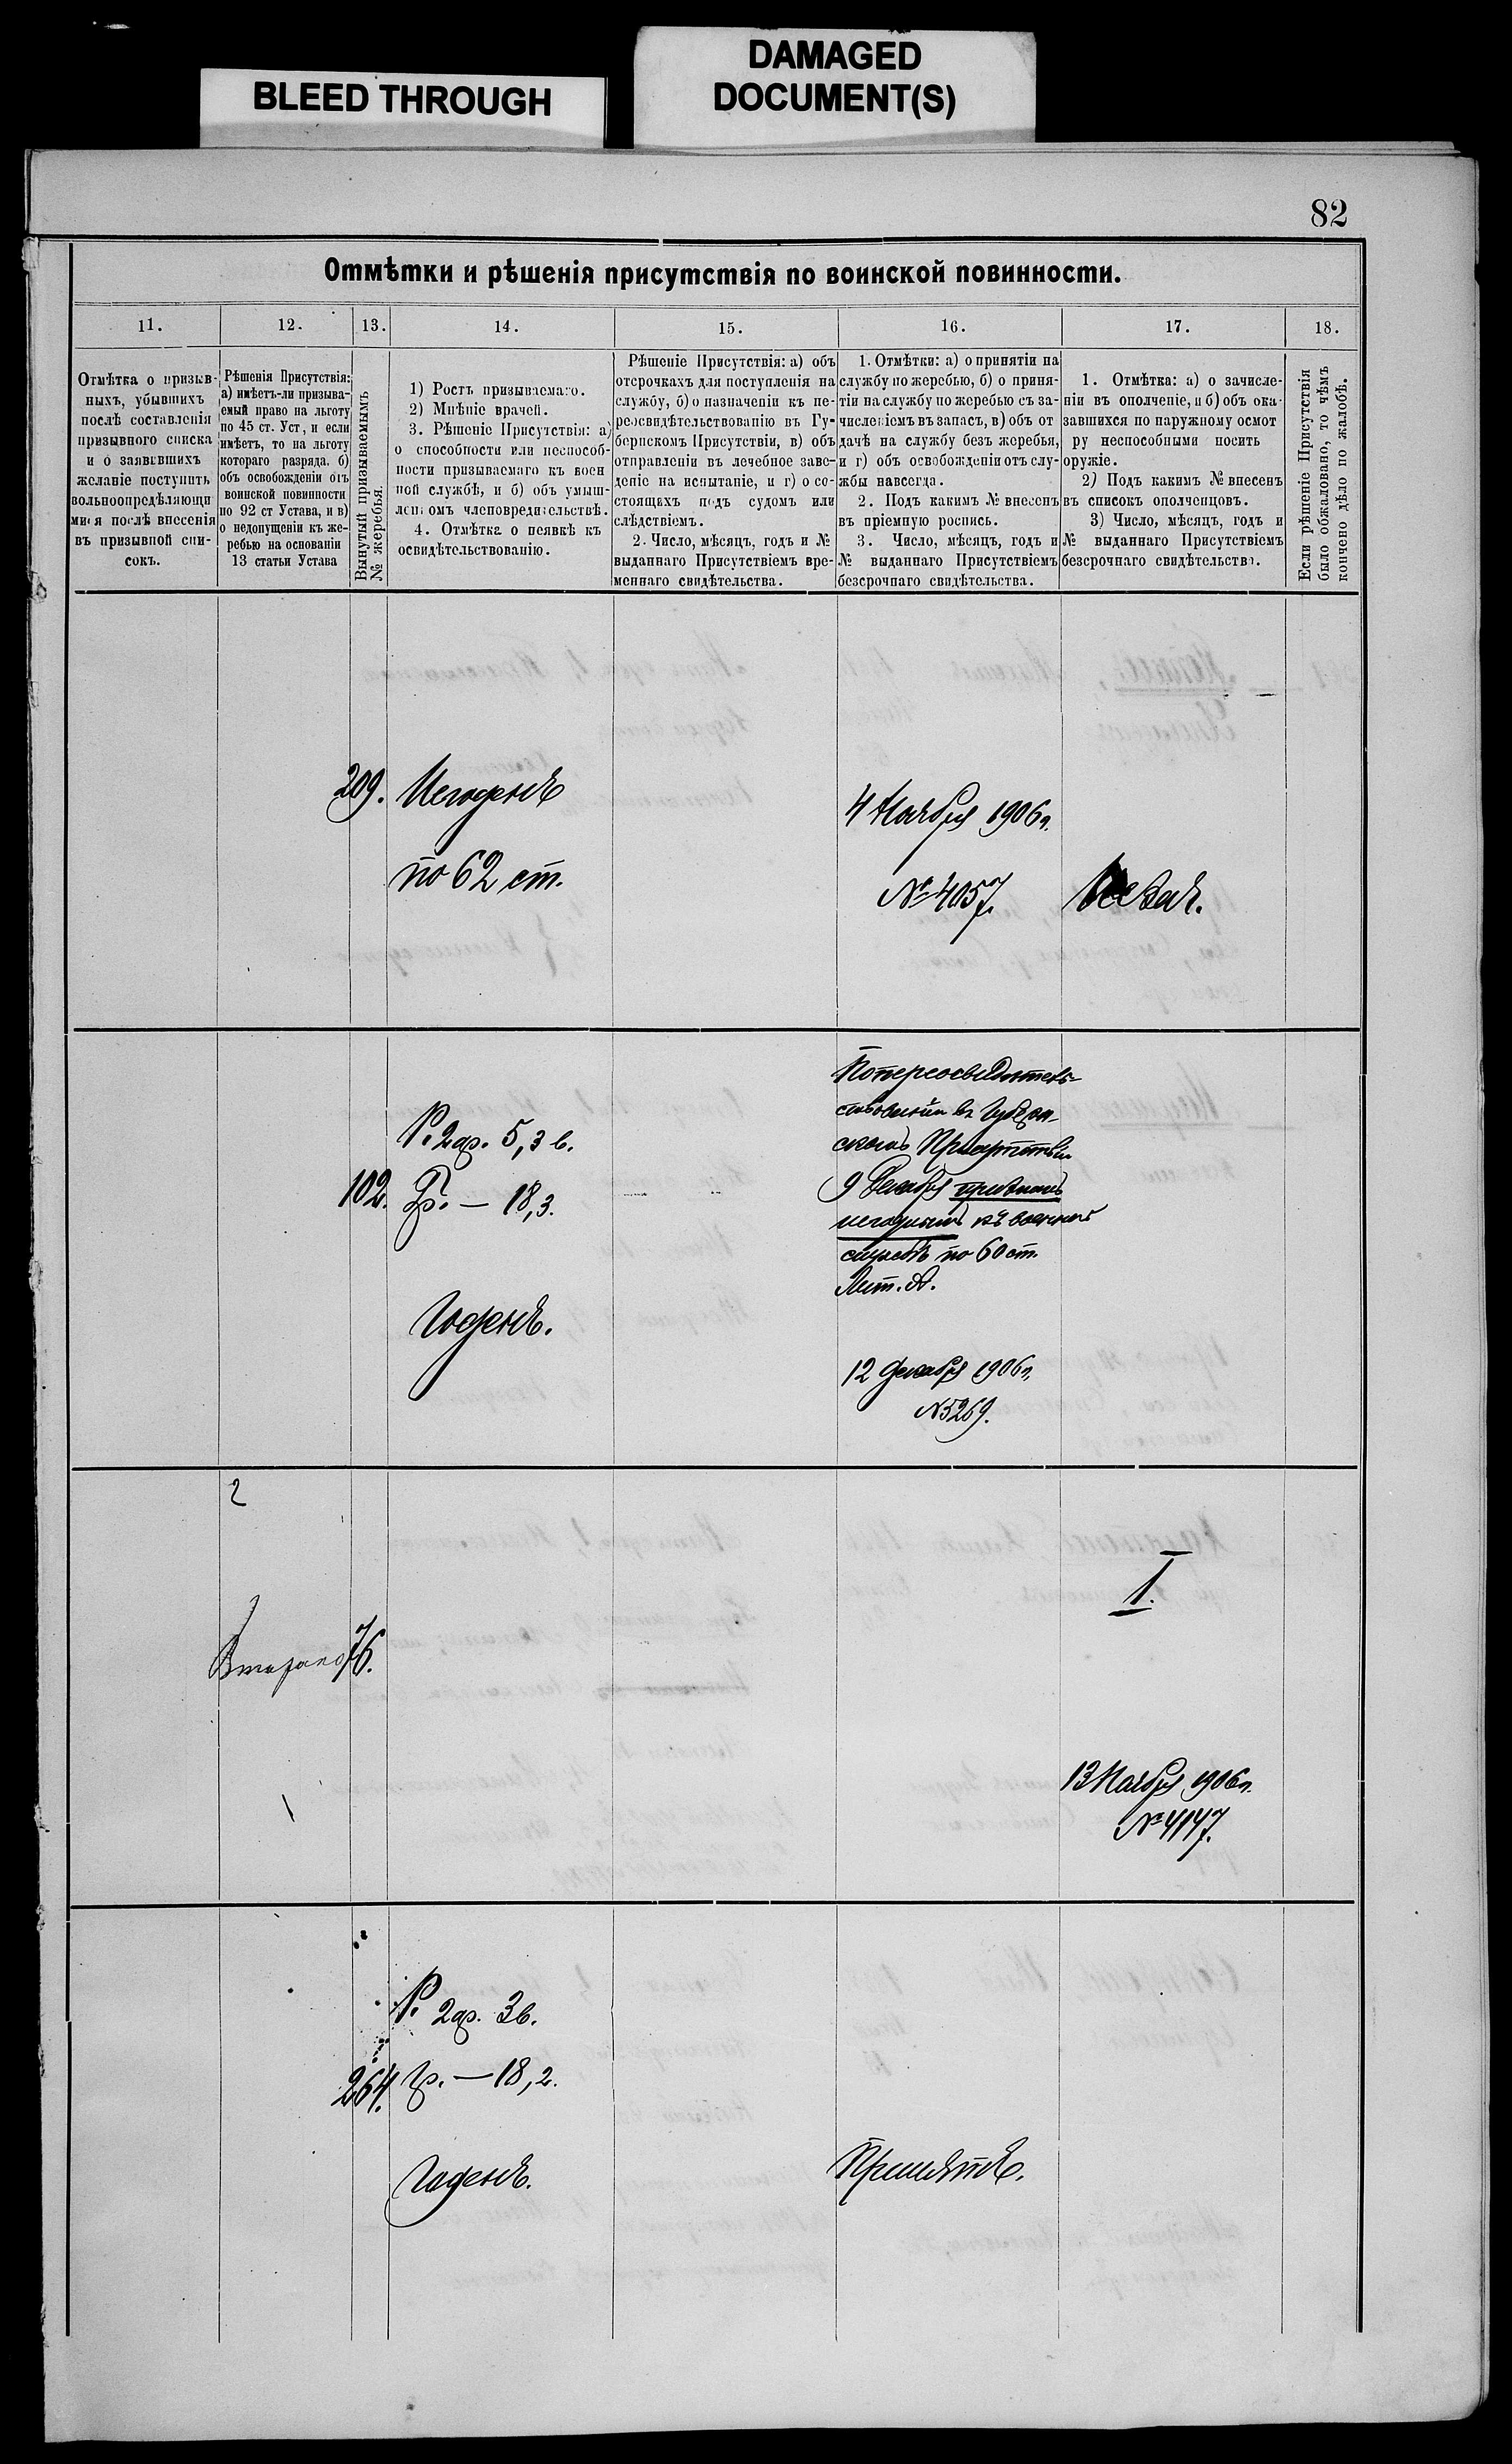 BLEED THROUGH
DAMAGED
DOCUMENT(S)
82
Отмѣтки и рѣшенія присутствія по воинской повинности.
11.
12.
13.
14.
15.
16.
17.
18.
Отмѣтка о призыв-
ныхъ, убывшихъ
послѣ составленія
призывного списка
и о заявившихъ
желаніе поступить
вольноопредѣляющи
мися послѣ внесенія
въ призывной спи-
сокъ.
Рѣшенія Присутствія:
а) имѣетъ-ли призыва-
емый право на льготу
по 45 ст. Уст, и если
имѣетъ, то на льготу
котораго разряда. б)
объ освобожденіи отъ
воинской повинности
по 92 ст Устава, и в)
о недопущеніи къ же-
ребью на основаніи
13 статьи Устава
Вынутый призываемымъ
№ жеребья.
1) Ростъ призываемаго.
2) Мнѣніе врачей.
3. Рѣшеніе Присутствія: а)
о способности или неспособ-
ности призываемаго къ воен
ной службѣ, и б) объ умыш-
леномъ членовредительствѣ.
4. Отмѣтка о неявкѣ къ
освидѣтельствованію.
Рѣшеніе Присутствія: а) объ
отсрочкахъ для поступленія на
службу, б) о назначеніи къ пе-
реосвидѣтельствованію въ Гу-
бернскомъ Присутствіи, в) объ
отправленіи въ лечебное заве-
деніе на испытаніе, и г) о со-
стоящахъ подъ судомъ или
слѣдствіемъ.
2. Число, мѣсяцъ, годъ и №
выданнаго Присутствіемъ вре-
меннаго свидѣтельства.
1. Отмѣтки: а) о принятіи на
службу по жеребью, б) о приня-
тіи на службу по жеребью съ за-
численіемъ въ запасъ, в) объ от
дачѣ на службу безъ жеребья,
и г) объ освобожденіи отъ слу-
жбы навсегда.
2. Подъ какимъ № внесенъ
въ пріемную роспись.
3. Число, мѣсяцъ, годъ и
№ выданнаго Присутствіемъ
безсрочнаго свидѣтельства.
1. Отмѣтка: а) о зачисле-
ніи въ ополченіе, и б) объ ока-
завшихся по паружному осмот
ру неспособными носить
оружіе.
2) Подъ какимъ № внесенъ
въ списокъ ополченцовъ.
3) Число, мѣсяцъ, годъ и
№ выданнаго Присутствіемъ
безсрочнаго свидѣтельства.
Если рѣшеніе Присутствія
было обжаловано, то чѣмъ
кончено дѣло по жалобѣ.
209.
Негоденъ
по 62 ст.
4 Ноября 1906 г.
№ 4057.
102.
Р. 2 ар. 5,3 в.
Гр. — 18,3.
Годенъ.
По переосвидѣтель-
ствованіи въ Губерн-
скомъ Присутствіи
9 Декабря признанъ
негоднымъ къ военной
службѣ по 60 ст.
Лит. А.
12 Декабря 1906 г.
№ 5269.
2
Втораго
76.
I.
13 Ноября 1906 г.
№ 4147.
264.
Р. 2 ар. 3 в.
гр. — 18,2.
Годенъ.
Принятъ.